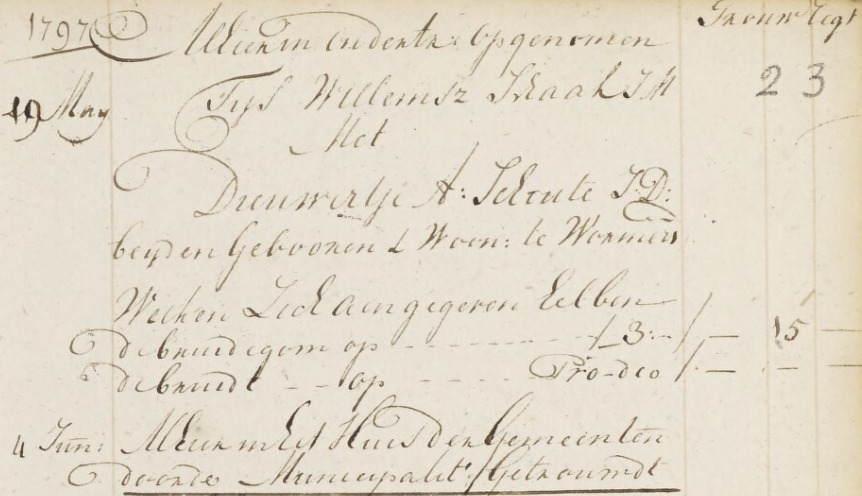 1797 Alhier in ondertr: opgenomen Trouw regt
23
19 May Tijs Willemsz Schaak J:M
Met
Dieuwertje A: Schoute J:D:
beyden Gebooren & Woon: te Wormer
Welken Zich aangegeven hebben
de bruidegom op - - - - ƒ3:- ƒ - 15 -
de bruidt - - op - - - Pro-deo ƒ - - -
4 Jun: Alhier in het Huis der Gemeenten
door de Municipalit: Getrouwdt